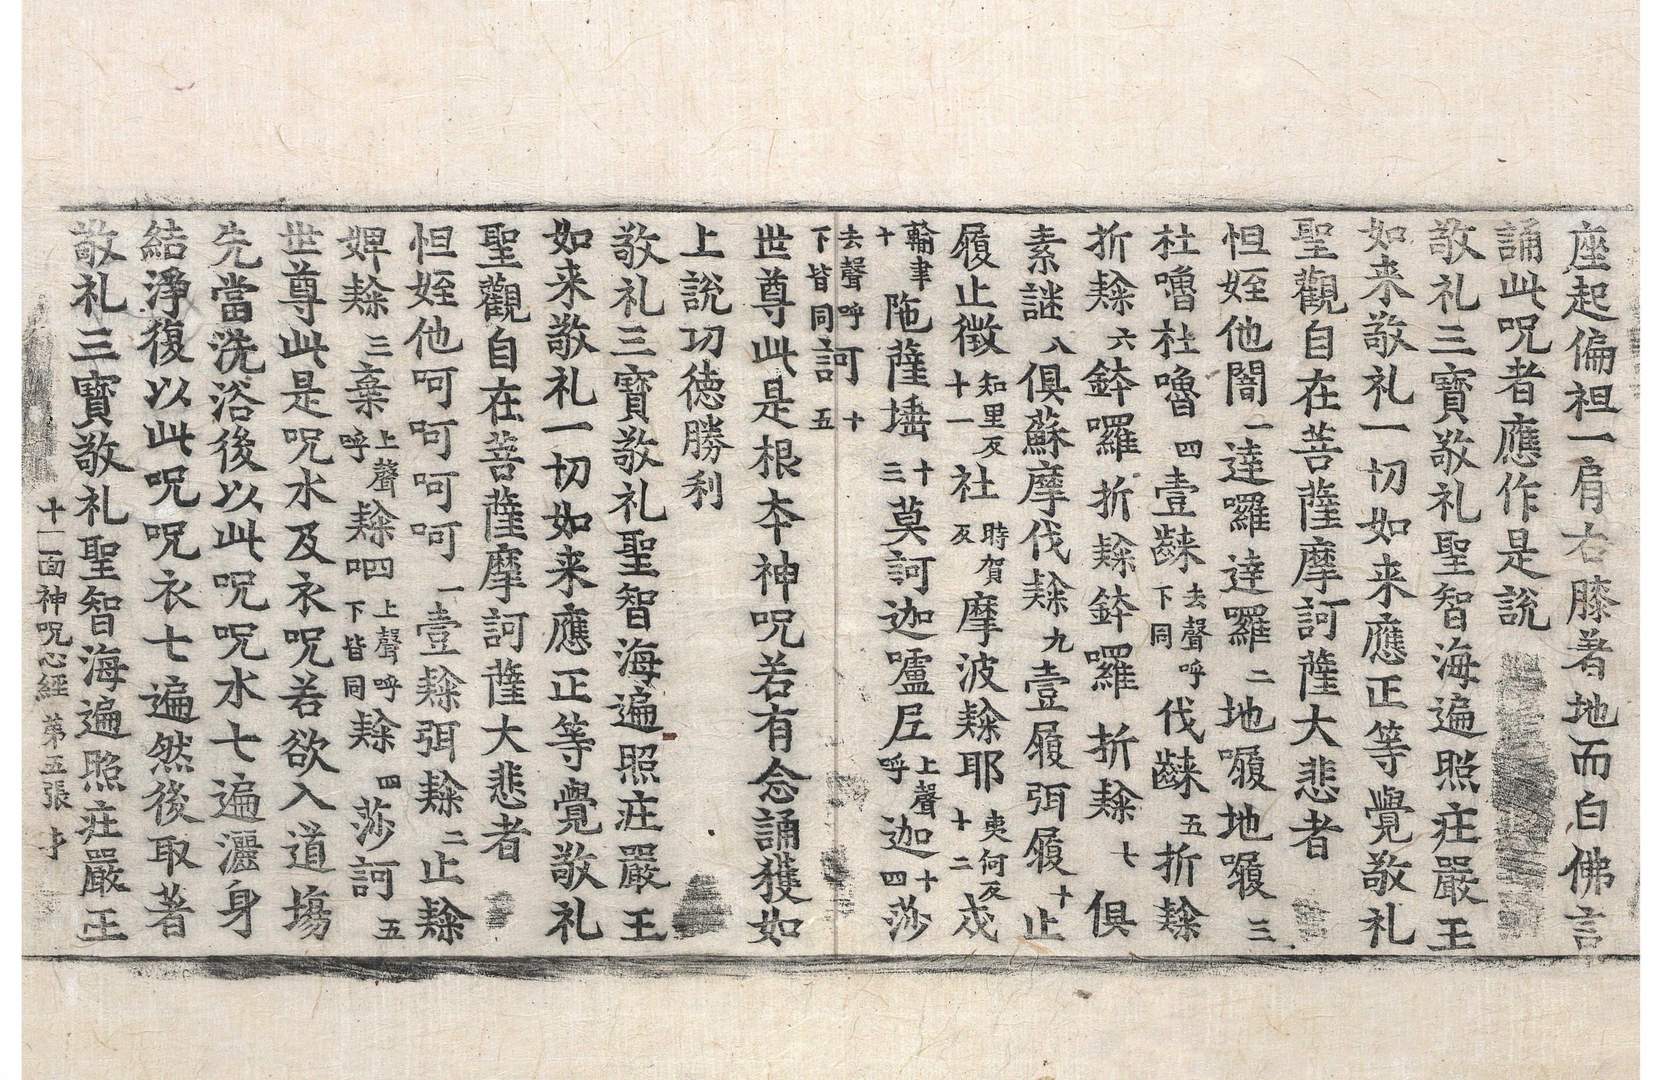 座起偏袒一肩右膝著地而白佛言
誦此呪者應作是說
敬礼三寶敬礼聖智海遍照庄嚴王
如来敬礼一切如来應正等覺敬礼
聖觀自在菩薩摩訶薩大悲者
怛姪他闇一達囉達囉二地𡃤地𡃤三
杜嚕杜嚕四壹𪘨去聲呼下同伐𪘨五折㯿
折㯿六鉢囉折㯿鉢囉折㯿七俱
素謎八俱蘇摩伐㯿九壹履弭履十止
履止徵知里反十一社時賀反摩波㯿耶夷何反十二戍
輸聿十陁薩埵十三莫訶迦嚧尼上聲呼迦十四莎
去聲呼下皆同訶十五
世尊此是根本神呪若有念誦獲如
上說功德勝利
敬礼三寶敬礼聖智海遍照庄嚴王
如来敬礼一切如来應正等覺敬礼
聖觀自在菩薩摩訶薩大悲者
怛姪他呵呵呵呵一壹㯿弭㯿二止㯿
婢㯿三棄上聲呼㯿呬上聲呼下皆同㯿四莎訶五
世尊此是呪水及衣呪若欲入道場
先當洗浴後以此呪呪水七遍灑身
結淨復以此呪呪衣七遍然後取著
十一面神呪心經 第五張 才
敬礼三寶敬礼聖智海遍照庄嚴王